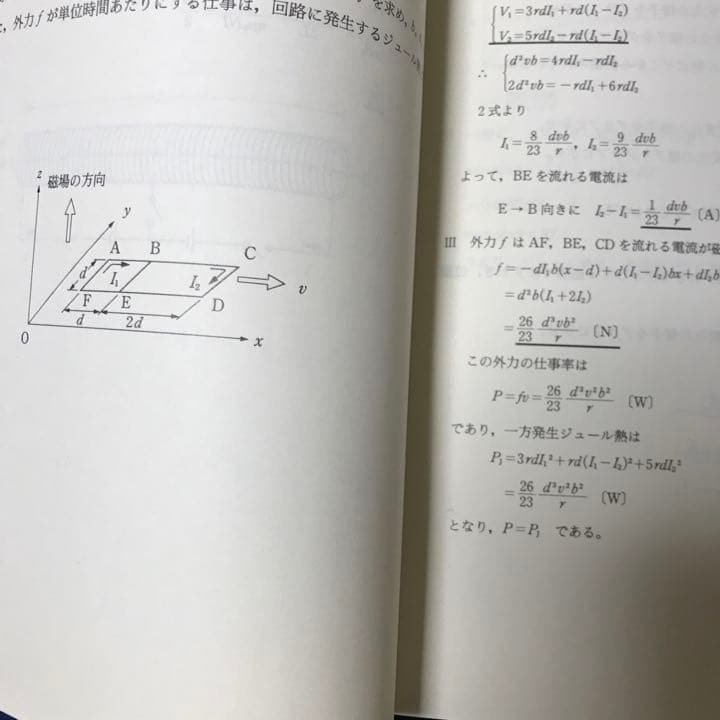 外力fが単位時間あたりにする仕事は，回路に発生するジュール熱
を求め，
z
磁場の方向
y
A
B
C
d
I₁
I₂
v
F
E
D
d
2d
0
x
V₁＝3rdI₁＋rd(I₁－I₂)
V₂＝5rdI₂－rd(I₁－I₂)
∴ d²vb＝4rdI₁－rdI₂
2d²vb＝－rdI₁＋6rdI₂
2式より
I₁＝8/23 dvb/r，I₂＝9/23 dvb/r
よって，BEを流れる電流は
E→B向きに I₂－I₁＝1/23 dvb/r 〔A〕
Ⅲ 外力fはAF，BE，CDを流れる電流が磁
f＝－dI₁b(x－d)＋d(I₁－I₂)bx＋dI₂b
＝d²b(I₁＋2I₂)
＝26/23 d³vb²/r 〔N〕
この外力の仕事率は
P＝fv＝26/23 d³v²b²/r 〔W〕
であり，一方発生ジュール熱は
P_J＝3rdI₁²＋rd(I₁－I₂)²＋5rdI₂²
＝26/23 d³v²b²/r 〔W〕
となり，P＝P_J である。